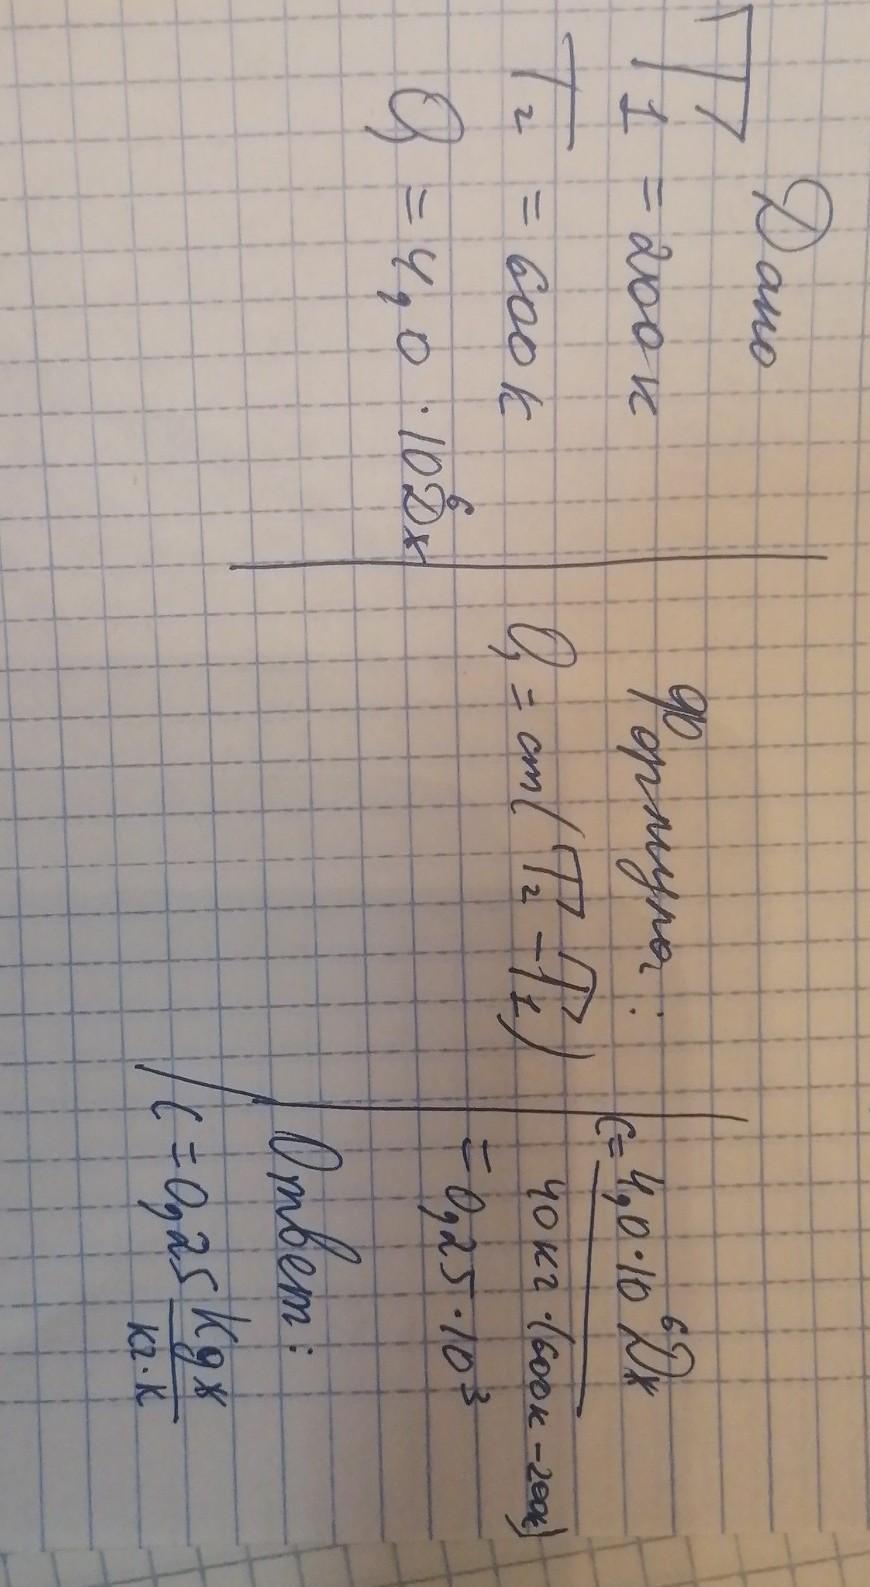 Дано
T1 = 200к
T2 = 600к
Q = 4,0 · 10⁶ Дж
формула:
Q = cm(T2 - T1)
c = 4,0 · 10⁶ Дж
40кг · (600к - 200к)
= 0,25 · 10³
Ответ:
c = 0,25 кдж
кг · к